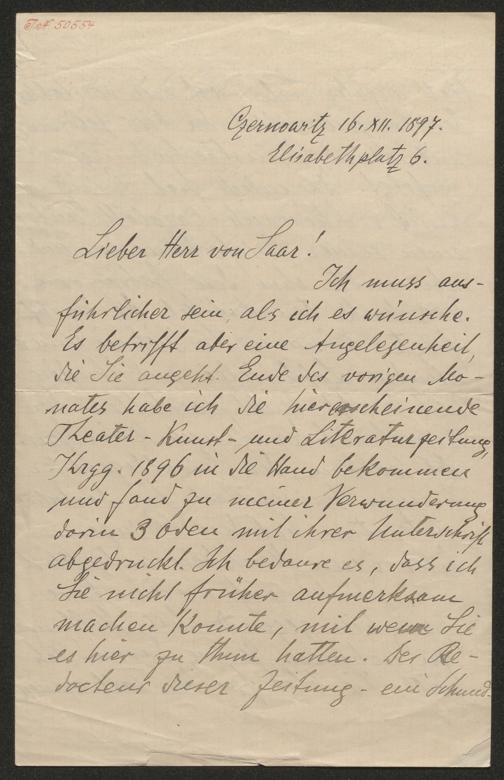 Czernowitz 16. XII. 1897.
Elisabethplatz 6.
Lieber Herr von Saar!
Ich muss aus-
führlicher sein, als ich es wünsche.
Es betrifft aber eine Angelegenheit,
die Sie angeht. Ende des vorigen Mo-
nates habe ich die hier erscheinende
Theater- Kunst- und Literaturzeitung,
Jhrgg. 1896 in die Hand bekommen
und fand zu meiner Verwunderung
darin 3 Oden mit ihrer Unterschrift
abgedruckt. Ich bedaure es, dass ich
Sie nicht früher aufmerksam
machen konnte, mit wem Sie
es hier zu thun hatten. Der Re-
dacteur dieser Zeitung - ein Schmid-